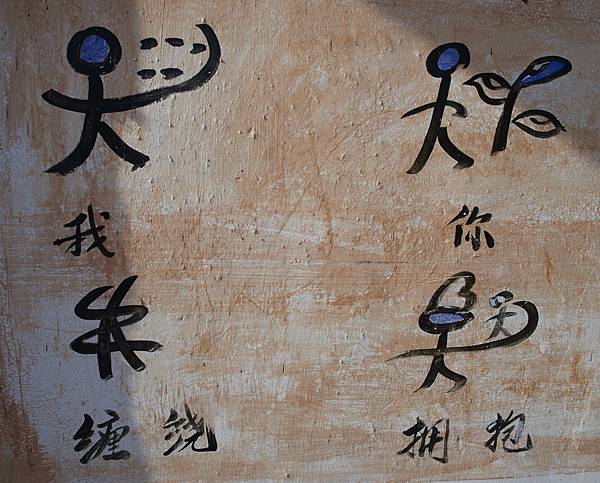 我 你
缠绕 拥抱